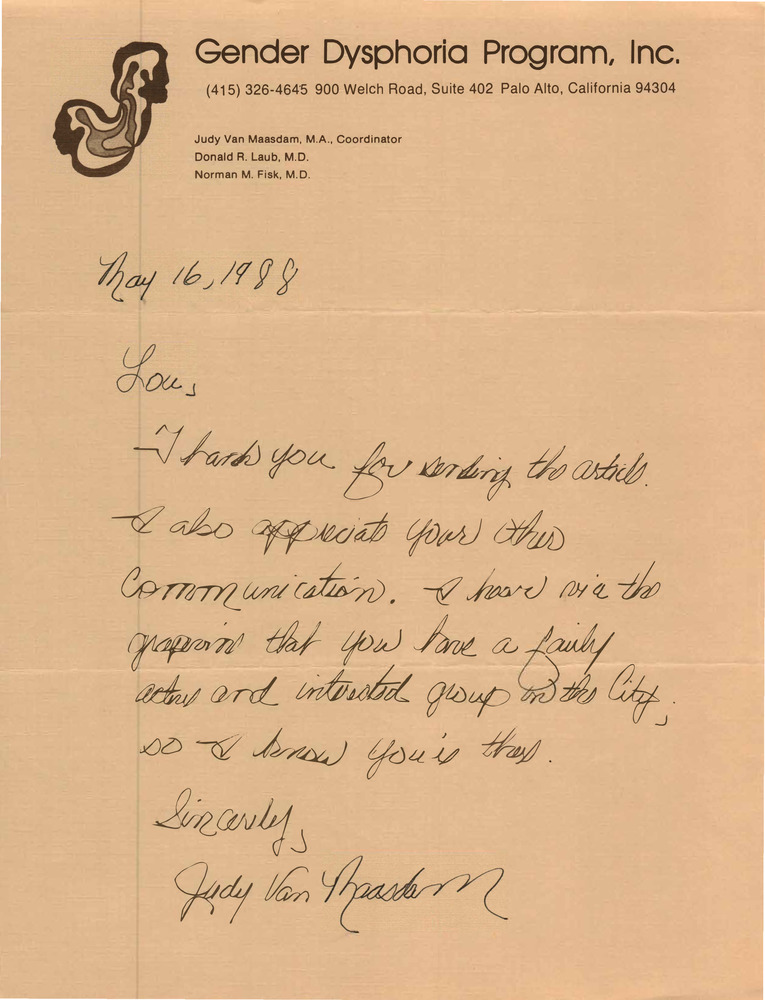 Gender Dysphoria Program, Inc.
(415) 326-4645 900 Welch Road, Suite 402 Palo Alto, California 94304
Judy Van Maasdam, M.A., Coordinator
Donald R. Laub, M.D.
Norman M. Fisk, M.D.
May 16, 1988
Lou,
Thank you for sending the article.
I also appreciate your other
communication. I hear via the
grapevine that you have a fairly
active and interested group in the City,
so I know you're there.
Sincerely,
Judy Van Maasdam